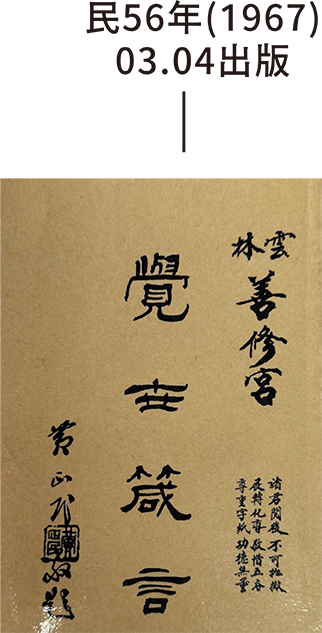 民56年(1967)
03.04出版
雲林
善修宮
諸君閱後 不可
展轉化導 敬惜五谷
尊重字紙 功德無量
覺世箴言
黃正 敬題